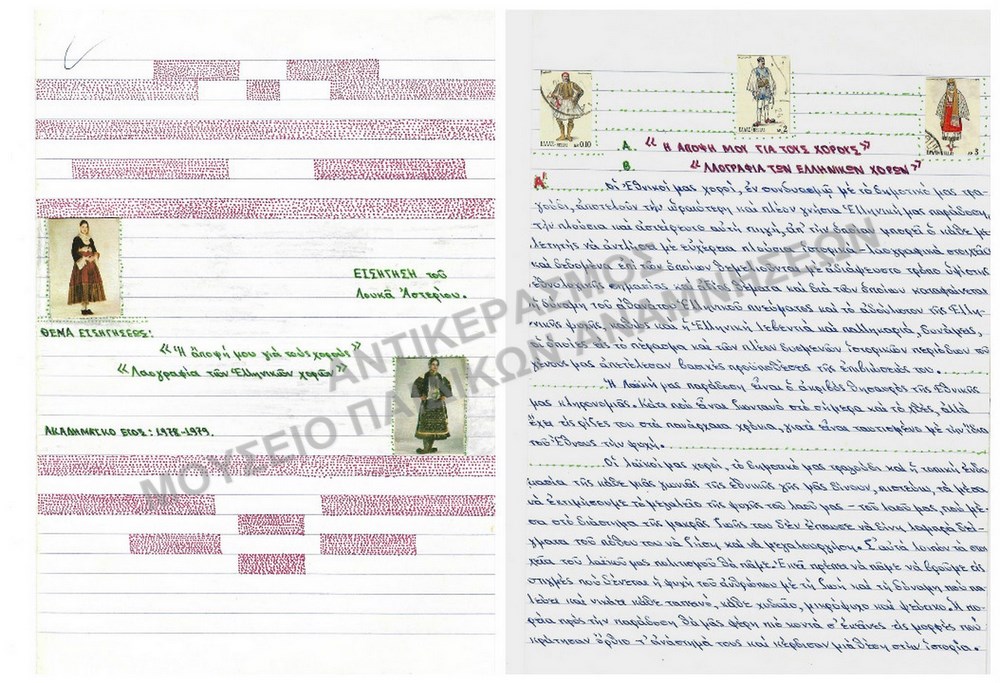 ΕΙΣΗΓΗΣΗ τοῦ
Λουκᾶ Ἀστερίου.
ΘΕΜΑ ΕΙΣΗΓΗΣΕΩΣ:
« Ἡ ἄποψή μου γιά τούς χορούς »
« Λαογραφία τῶν Ἑλληνικῶν χορῶν »
ΑΚΑΔΗΜΑΪΚΟ ΕΤΟΣ: 1978-1979.
ΑΝΤΙΚΕΡΑΣΜΟΣ
ΜΟΥΣΕΙΟ ΠΑΙΔΙΚΩΝ ΑΝΑΜΝΗΣΕΩΝ
ΕΛΛΑΣ-HELLAS 0.10
ΕΛΛΑΣ-HELLAS 2
ΕΛΛΑΣ-HELLAS 3
Α. « Η ΑΠΟΨΗ ΜΟΥ ΓΙΑ ΤΟΥΣ ΧΟΡΟΥΣ »
Β. « ΛΑΟΓΡΑΦΙΑ ΤΩΝ ΕΛΛΗΝΙΚΩΝ ΧΟΡΩΝ »
Α'
Οἱ Ἐθνικοί μας χοροί, ἐν συνδυασμῷ μέ τό δημοτικό μας τρα-
γούδι, ἀποτελοῦν τήν ὡραιότερη καί πλέον γνήσια Ἑλληνική μας παράδοση,
τήν πλούσια καί ἀστείρευτο αὐτή πηγή, ἀπ' τήν ὁποία μπορεῖ ὁ κάθε με-
λετητής νά ἀντλήσῃ μέ εὐχέρεια πλούσια ἱστορικά - λαογραφικά στοιχεῖα
καί δεδομένα ἐπί τῶν ὁποίων θεμελιοῦνται μέ ἀδιάψευστο τρόπο ὑψίστης
ἐθνολογικῆς σημασίας καί ἀξίας θέματα καί διά τῶν ὁποίων καταφαίνεται
ἡ δύναμη τοῦ ἀθάνατου Ἑλληνικοῦ πνεύματος καί τό ἀδούλωτον τῆς Ἑλλη-
νικῆς ψυχῆς, καθώς καί ἡ Ἑλληνική λεβεντιά καί παλληκαριά, δυνάμεις,
οἱ ὁποῖες στό πέρασμα καί τῶν πλέον δυσμενῶν ἱστορικῶν περιόδων τοῦ
γένους μας ἀπετέλεσαν βασικές προϋποθέσεις τῆς ἐπιβιώσεώς του.
Ἡ λαϊκή μας παράδοση, εἶναι ὁ ἀκριβός θησαυρός τῆς Ἐθνικῆς
μας κληρονομιᾶς. Κάτι πού εἶναι ζωντανό στό σήμερα καί τό χθές, ἀλλά
ἔχει τίς ρίζες του στά πανάρχαια χρόνια, γιατί εἶναι ταυτισμένο μέ τήν ἴδια
τοῦ Ἔθνους τήν ψυχή.
Οἱ λαϊκοί μας χοροί, τό δημοτικό μας τραγούδι καί ἡ τοπική ἐνδυ-
μασία τῆς κάθε μιᾶς γωνιᾶς τῆς ἐθνικῆς γῆς μᾶς δίνουν, πιστεύω, τά μέσα
νά ἐκτιμήσουμε τό μεγαλεῖο τῆς ψυχῆς τοῦ λαοῦ μας - τοῦ λαοῦ μας, πού μέ-
σα στό διάστημα τῆς μακρᾶς ζωῆς του δέν ἔπαυσε νά δίνῃ λαμπρά δεί-
γματα τοῦ πόθου του νά ζήσῃ καί νά μεγαλουργήσῃ. Σ' αὐτά λοιπόν τά στοι-
χεῖα τοῦ λαϊκοῦ μας πολιτισμοῦ θά πᾶμε. Ἐκεῖ πρέπει νά πᾶμε νά βροῦμε τίς
στιγμές πού δένεται ἡ ψυχή τοῦ ἀνθρώπου μέ τή ζωή καί τή δύναμη, πού πα-
λεύει καί νικάει κάθε ταπεινό, κάθε χυδαῖο, μικρόψυχο καί ψεύτικο. Ἡ πο-
ρεία πρός τήν παράδοση, θά μᾶς φέρῃ πιό κοντά σ' ἐκεῖνες τίς μορφές πού
κράτησαν ὄρθιο τ' ἀνάστημά τους καί κέρδισαν μιά θέση στήν ἱστορία.